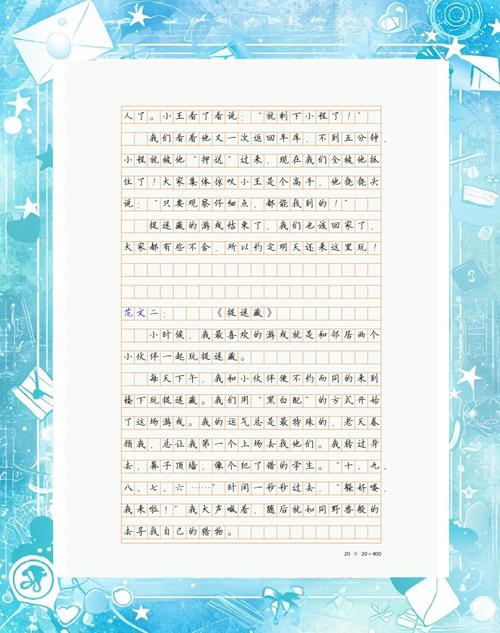 人了。小王看了看说：“就剩下小程了！”
我们看着他又一次返回车库，不到五分钟，
小程就被他“押送”过来，现在我们全被他抓
住了！大家集体惊叹小王是个高手，他挠挠头
说：“只要观察仔细点，都能找到的！”
捉迷藏的游戏结束了，我们也该回家了，
大家都有些不舍，所以约定明天还来这里玩！
范文二： 《捉迷藏》
小时候，我最喜欢的游戏就是和邻居两个
小伙伴一起玩捉迷藏。
每天下午，我和小伙伴便不约而同的来到
楼下玩捉迷藏。我们用“黑白配”的方式开始
了这场游戏。我的运气总是最特殊的，老天眷
顾我，总让我第一个上场去找他们。我转过身
去，鼻子顶墙，像个犯了错的学生。“十、九、
八、七、六……”时间一秒秒过去，“躲好喽，
我来啦！”我大声喊着，随后就如同野兽般的
去寻找自己的猎物。
20 × 20=400